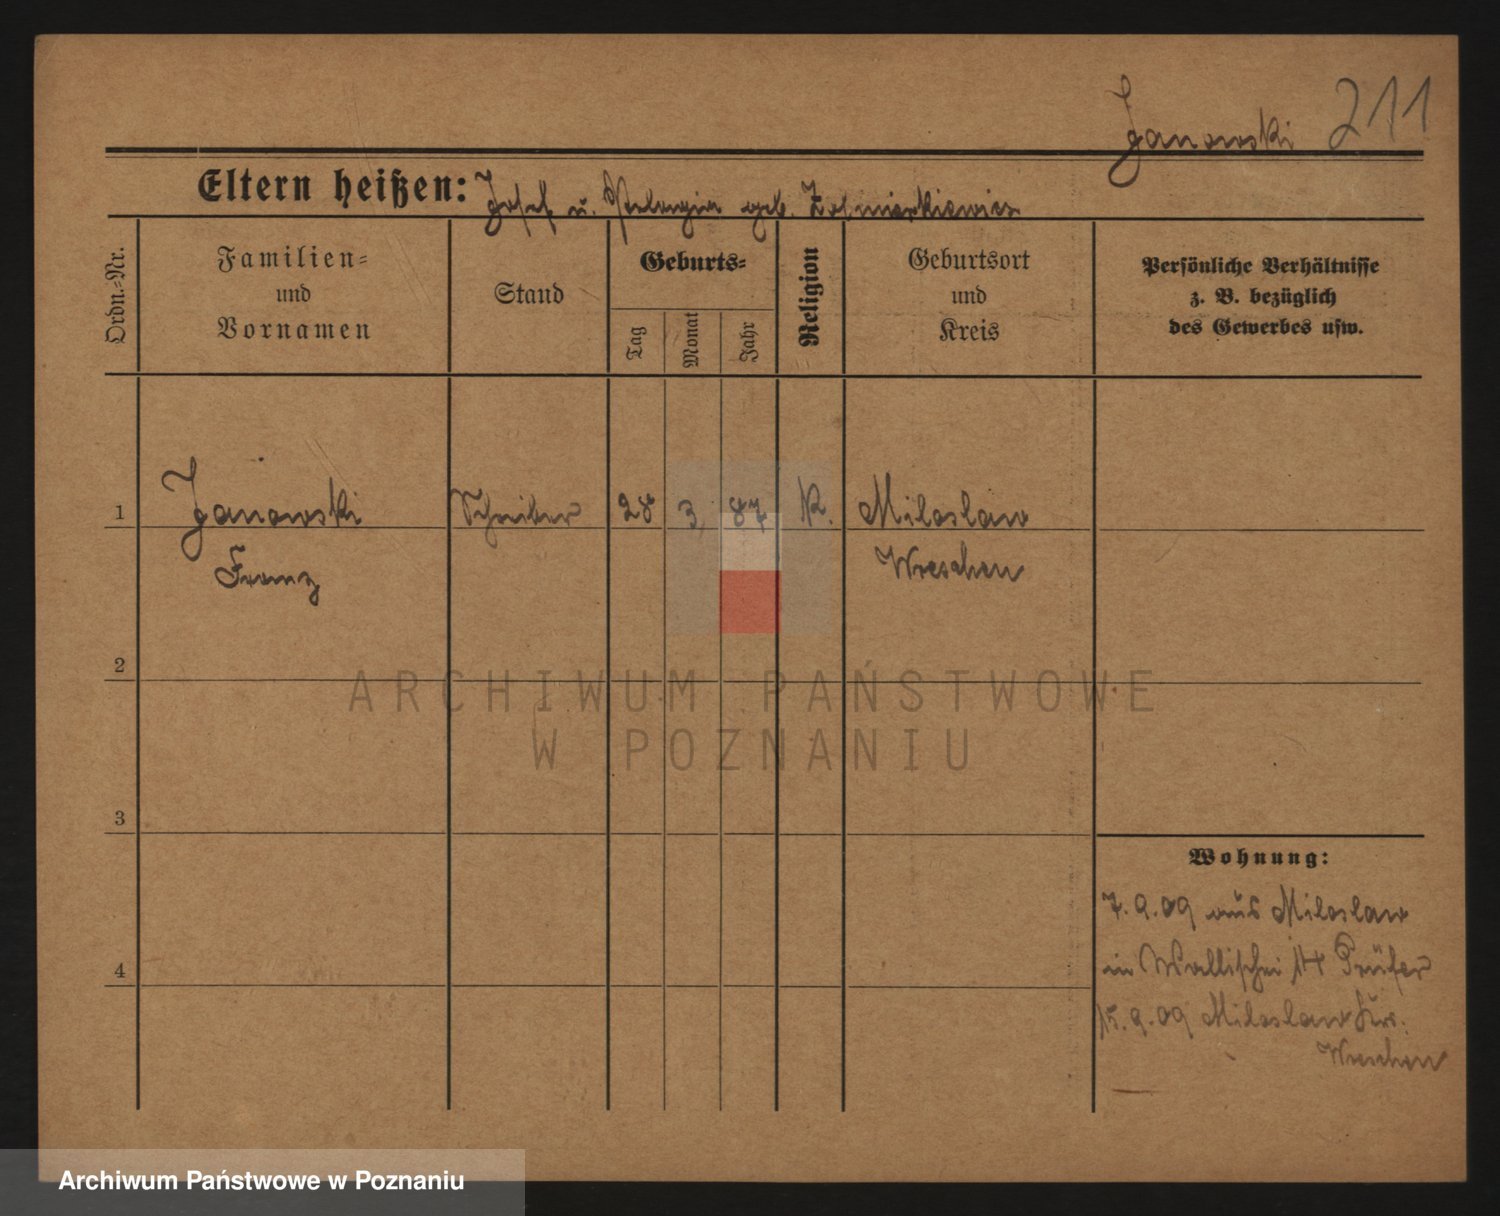 Janowski 211
Eltern heißen: Josef u. Pelagia geb.
Ordn.-Nr.
Familien-
und
Vornamen
Stand
Geburts-
Tag
Monat
Jahr
Religion
Geburtsort
und
Kreis
Persönliche Verhältnisse
z. B. bezüglich
des Gewerbes usw.
1 Janowski Schreiber 28 3 87 K. Miloslaw
Franz Wreschen
2
ARCHIWUM PAŃSTWOWE
W POZNANIU
3
Wohnung:
7.9.09 aus Miloslaw
in Wallischei 14 Prüfer
4
15.9.09 Miloslaw Krs.
Wreschen
Archiwum Państwowe w Poznaniu